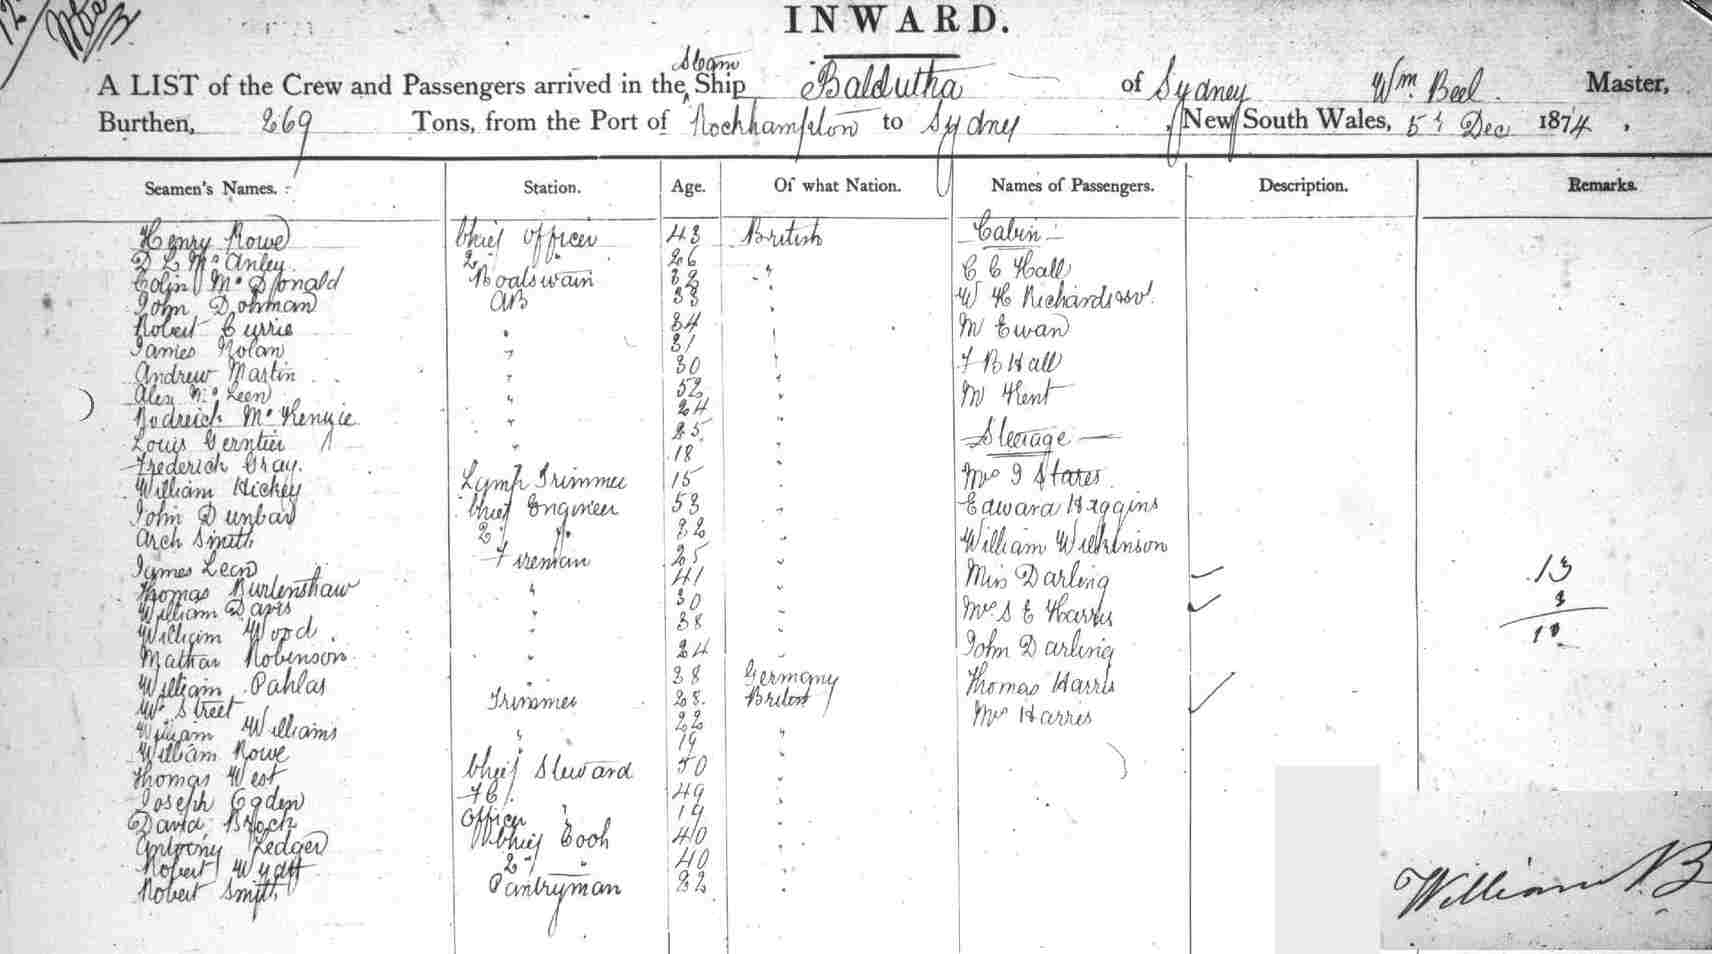 INWARD.
Steam
A LIST of the Crew and Passengers arrived in the Ship Balclutha of Sydney Wm. Beel Master,
Burthen, 269 Tons, from the Port of Rockhampton to Sydney, New South Wales, 5th Dec 1874,
Seamen's Names. Station. Age. Of what Nation. Names of Passengers. Description. Remarks.
Henry Rowe Chief Officer 43 British Cabin
D L McAnley 2 " 26
Colin McDonald Boatswain 32 " C C Hall
John Dohman AB 33 " W H Richardson
Robert Currie " 34 " M Ewan
James Nolan " 31
Andrew Martin " 30 " F B Hall
Alex McLeen " 52 " M Kent
Rodreick McKenzie " 24 "
Louis Gerntier " 25 " Steerage
Frederich Gray. " 18 "
William Hickey Lymp Trimmer 15 " Mrs J Stares
John Dunbar Chief Engineer 53 " Edward Higgins
Arch Smith 2 " 32 " William Wilkinson
James Leen Fireman 25 " Miss Darling 13
Thomas Burlenshaw " 41 " Mrs S E Harris 3
William Davis " 30 " 10
William Wood " 38 " John Darling
Mathar Robinson " 24 "
William Pahlas " 38 Germany Thomas Harris
Wm Street Trimmer 28 British Mrs Harris
William Williams " 22 "
William Rowe " 19 "
Thomas West Chief Steward 50 "
Joseph Ogden F C 49 "
David Brock Officer " 19 "
Antoony Ledger Chief Cook 40 "
Robert Wyatt 2 " 40 "
Robert Smith Pantryman 22 "
William B